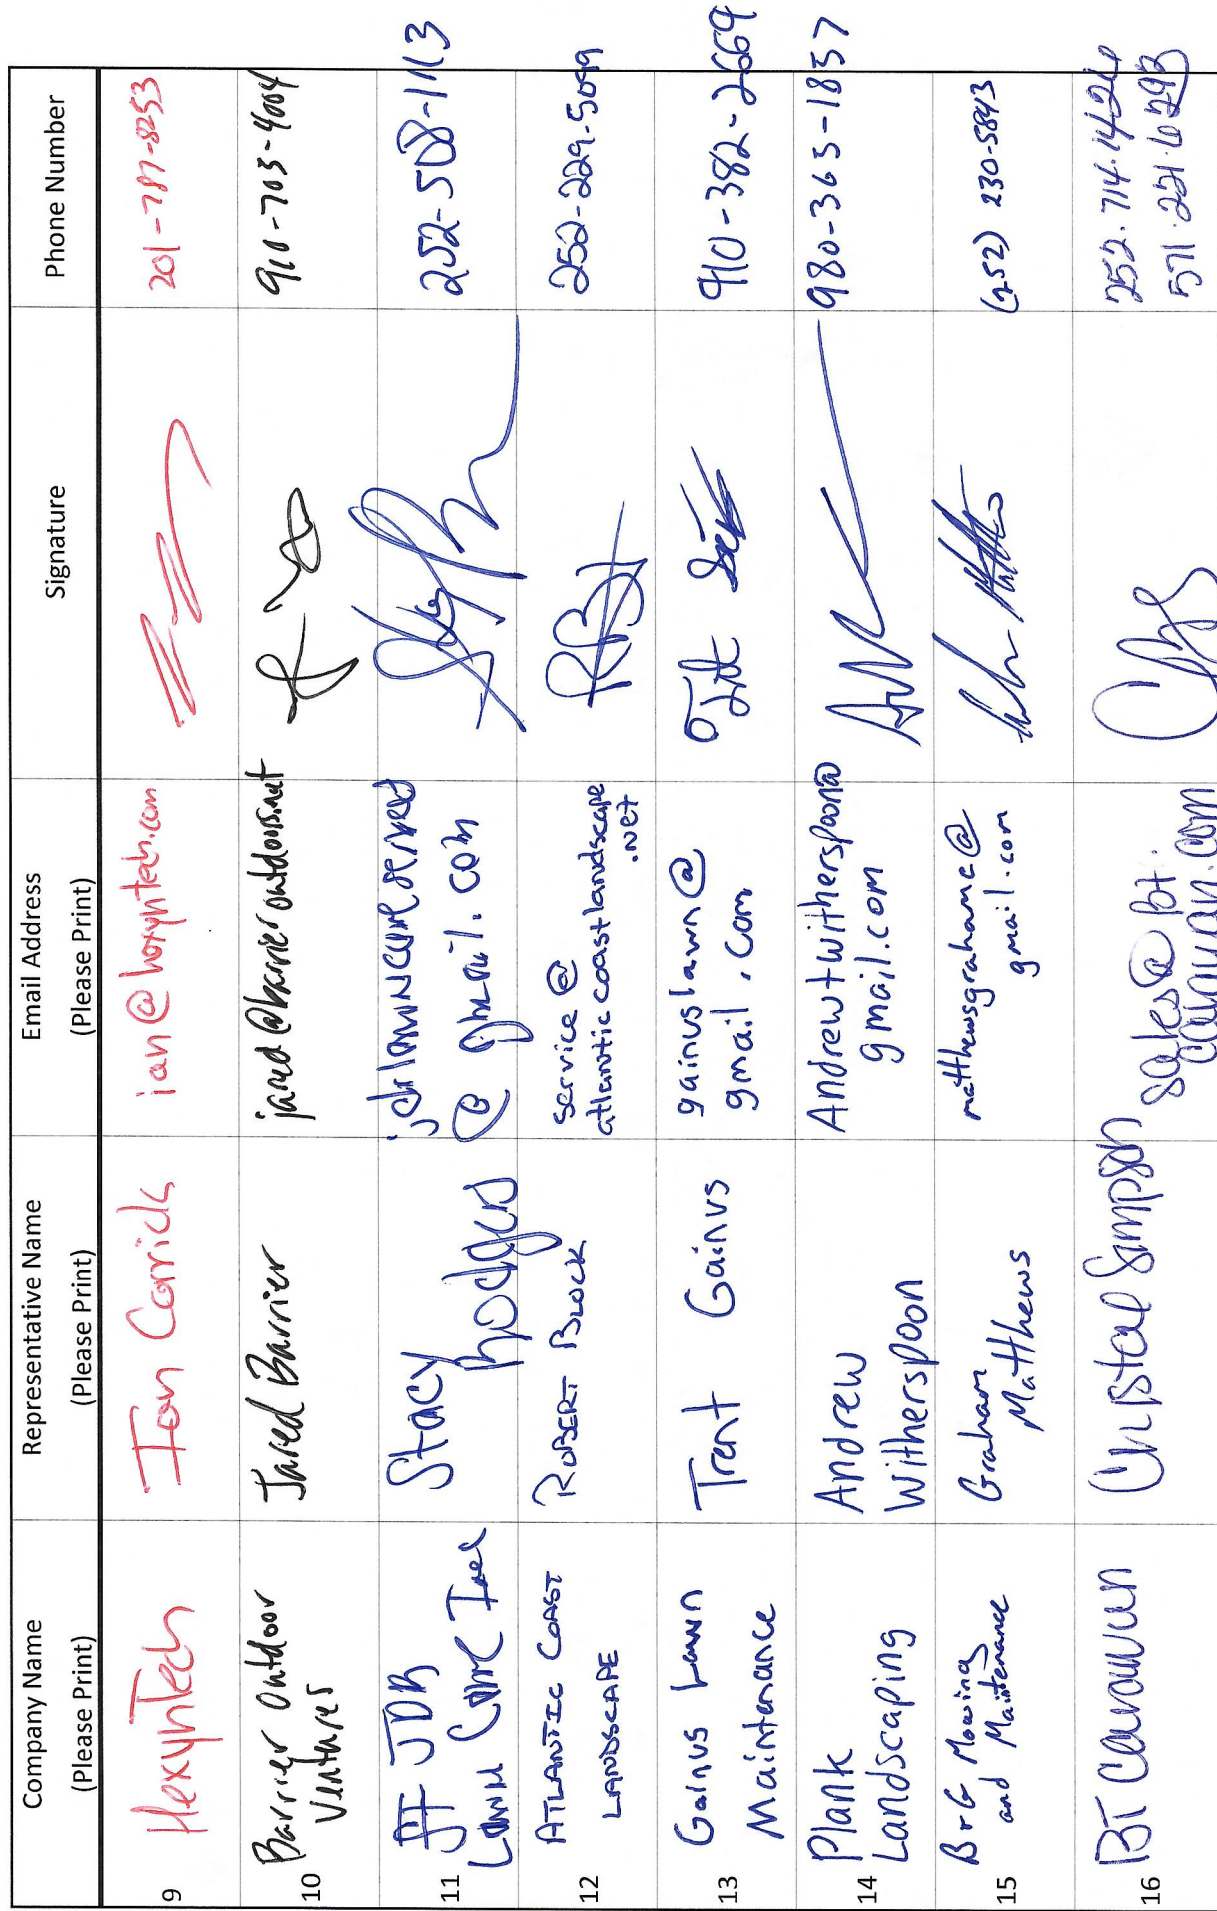 Company Name
(Please Print)
Representative Name
(Please Print)
Email Address
(Please Print)
Signature
Phone Number
9
HexynTech
Ian Carrick
ian@hexyntech.com
201-787-8253
10
Barrier Outdoor
Ventures
Jared Barrier
jared@barrieroutdoors.net
910-703-4004
11
JDR
Lawn Care
Stacy
Rhodges
@gmail.com
252-508-1113
12
ATLANTIC COAST
LANDSCAPE
ROBERT BROCK
service@
atlanticcoastlandscape
.net
252-229-5099
13
Gainus Lawn
Maintenance
Trent Gainus
gainuslawn@
gmail.com
910-382-2669
14
Plank
Landscaping
Andrew
Witherspoon
Andrewtwitherspoon@
gmail.com
980-363-1857
15
B+G Mowing
and Maintenance
Graham
Matthews
matthewsgrahamc@
gmail.com
(252) 230-5843
16
BT Caravan
Chrystal Simpson
sales@bt.
caravan.com
252.714.1424
571.221.6293